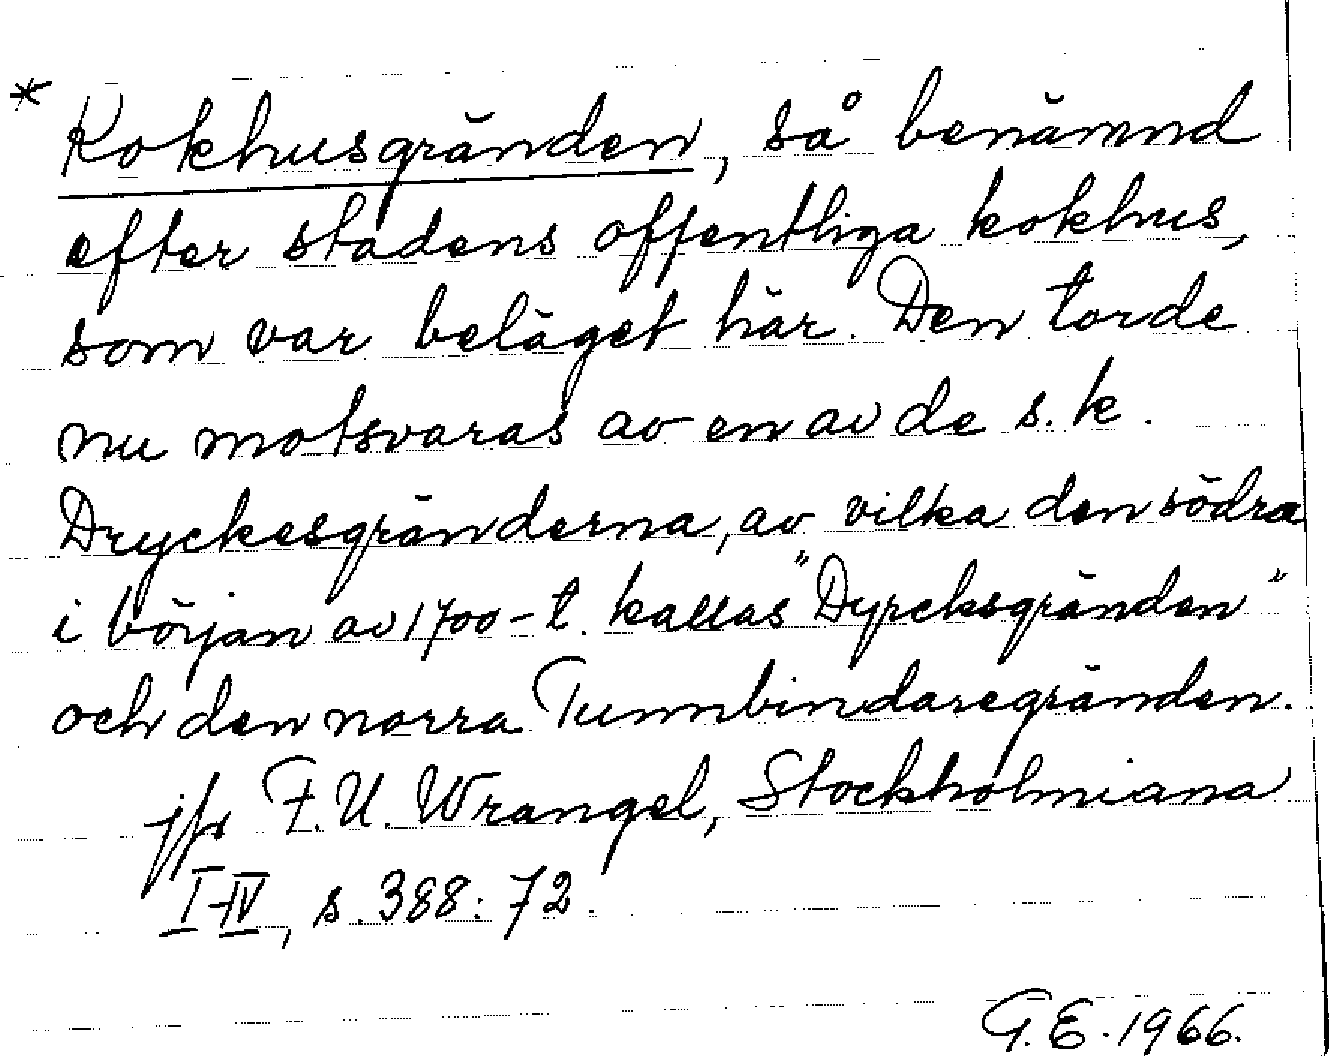 * Kokhusgränden, så benämnd
efter stadens offentliga kokhus,
som var beläget här. Den torde
nu motsvaras av en av de s.k.
Dryckesgränderna, av vilka den södra
i början av 1700-t. kallas "Dyrcksgränden"
och den norra Tunnbindaregränden.
jfr F.U. Wrangel, Stockholmiana
I-IV, s. 388: 72.
G.E. 1966.